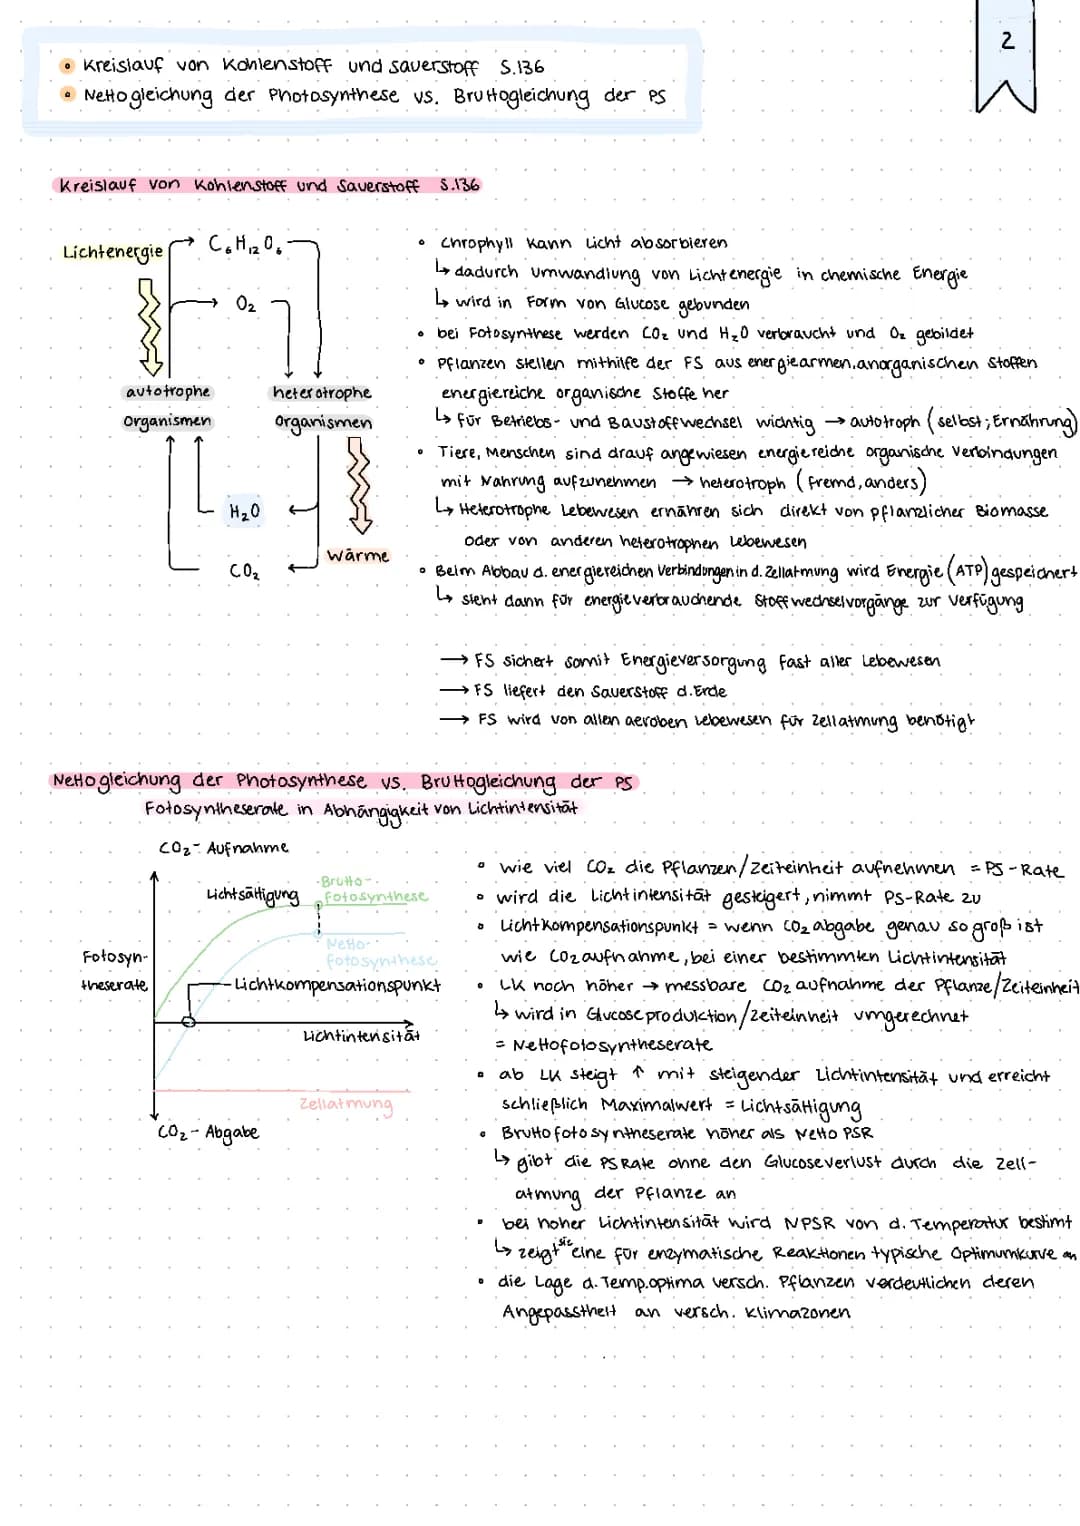 2
• Kreislauf von Kohlenstoff und Sauerstoff S.136
• Nettogleichung der Photosynthese vs. Bruttogleichung der PS
Kreislauf von Kohlenstoff und Sauerstoff S.136
Lichtenergie
→ C₆H₁₂O₆
→ O₂
autotrophe
Organismen
heterotrophe
Organismen
H₂O ←
CO₂ ←
Wärme
• Chrophyll kann Licht absorbieren
↳ dadurch Umwandlung von Lichtenergie in chemische Energie
↳ wird in Form von Glucose gebunden
• bei Fotosynthese werden CO₂ und H₂O verbraucht und O₂ gebildet
• Pflanzen stellen mithilfe der FS aus energiearmen, anorganischen Stoffen
energiereiche organische Stoffe her
↳ für Betriebs- und Baustoffwechsel wichtig → autotroph (selbst; Ernährung)
• Tiere, Menschen sind drauf angewiesen energiereiche organische Verbindungen
mit Nahrung aufzunehmen → heterotroph (fremd, anders)
↳ Heterotrophe Lebewesen ernähren sich direkt von pflanzlicher Biomasse
oder von anderen heterotrophen Lebewesen
• Beim Abbau d. energiereichen Verbindungen in d. Zellatmung wird Energie (ATP) gespeichert
↳ steht dann für energieverbrauchende Stoffwechselvorgänge zur Verfügung
→ FS sichert somit Energieversorgung fast aller Lebewesen
→ FS liefert den Sauerstoff d. Erde
→ FS wird von allen aeroben Lebewesen für Zellatmung benötigt
Nettogleichung der Photosynthese vs. Bruttogleichung der PS
Fotosyntheserate in Abhängigkeit von Lichtintensität
CO₂- Aufnahme
Lichtsättigung
Brutto-
fotosynthese
Netto-
fotosynthese
Fotosyn-
theserate
Lichtkompensationspunkt
Lichtintensität
Zellatmung
CO₂- Abgabe
• wie viel CO₂ die Pflanzen/Zeiteinheit aufnehmen = PS-Rate
• wird die Lichtintensität gesteigert, nimmt PS-Rate zu
• Lichtkompensationspunkt = wenn CO₂ abgabe genau so groß ist
wie CO₂ aufnahme, bei einer bestimmten Lichtintensität
• LK noch höher → messbare CO₂ aufnahme der Pflanze/Zeiteinheit
↳ wird in Glucoseproduktion/Zeiteinheit umgerechnet
= Nettofotosyntheserate
• ab LK steigt ↑ mit steigender Lichtintensität und erreicht
schließlich Maximalwert = Lichtsättigung
• Bruttofotosyntheserate höher als Netto PSR
↳ gibt die PS Rate ohne den Glucoseverlust durch die Zell-
atmung der Pflanze an
• bei hoher Lichtintensität wird NPSR von d. Temperatur bestimt
↳ zeigt sie eine für enzymatische Reaktionen typische Optimumkurve an
• die Lage d. Temp.optima versch. Pflanzen verdeutlichen deren
Angepasstheit an versch. Klimazonen